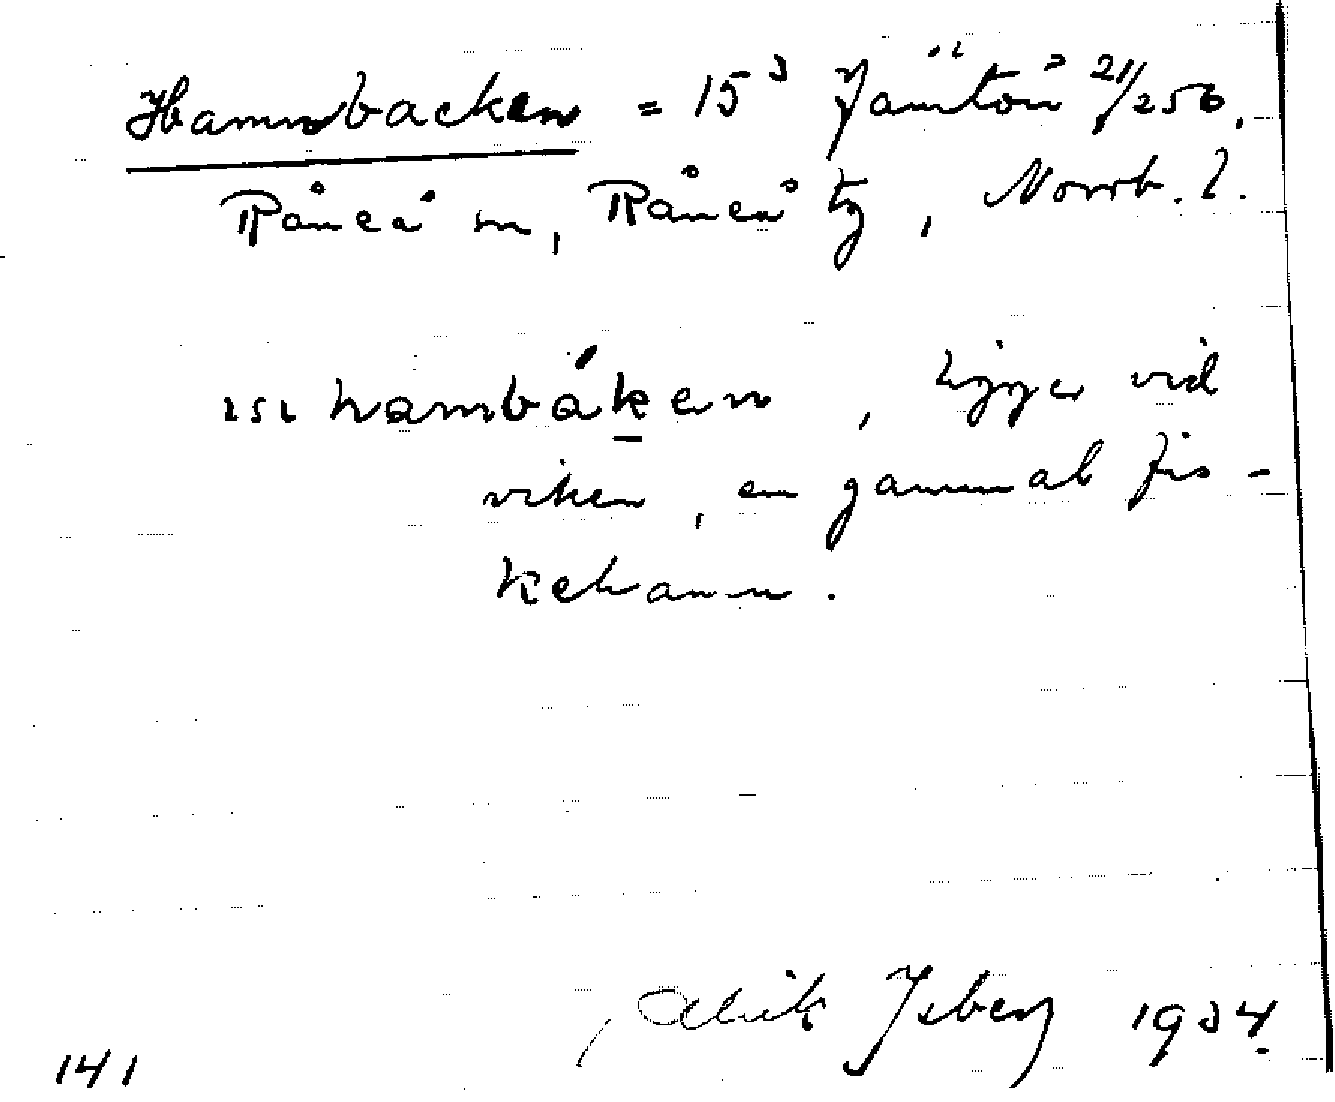 Hamnbacken = 15³ Jämtön 21/256,
Råneå sn, Råneå tg, Norrb. l.
ısı hambák̲en, ligger vid
viken, en gammal fis-
kehamn.
Isberg 1934.
141